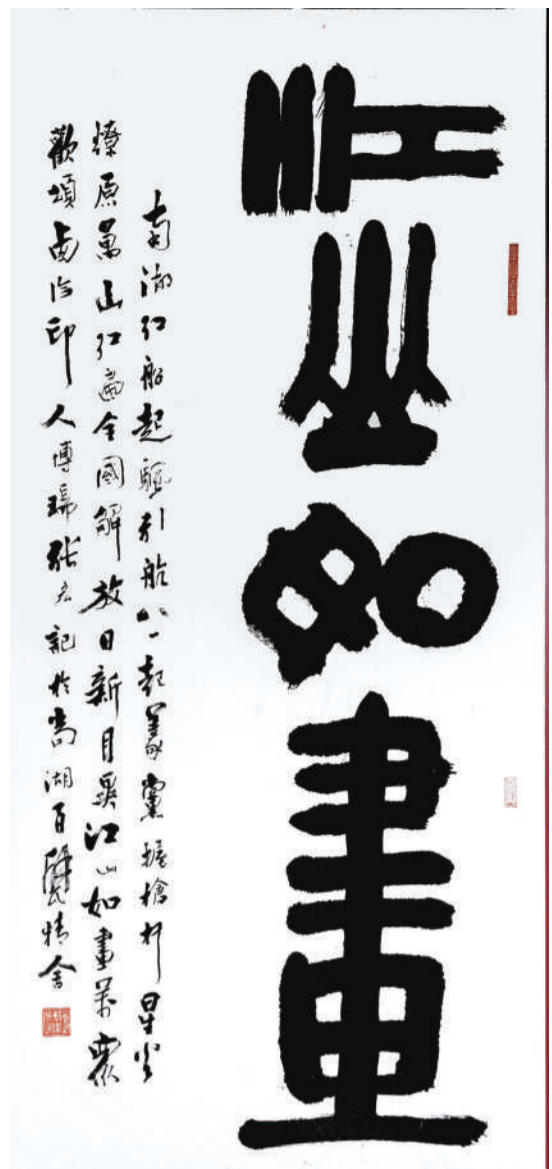 江山如畫
南湖红船起駛引航八一起義黨握槍杆星火
燎原萬山红遍全國解放日新月異江山如畫萬衆
歡頌西泠印人博瑞張記於湖百精舍